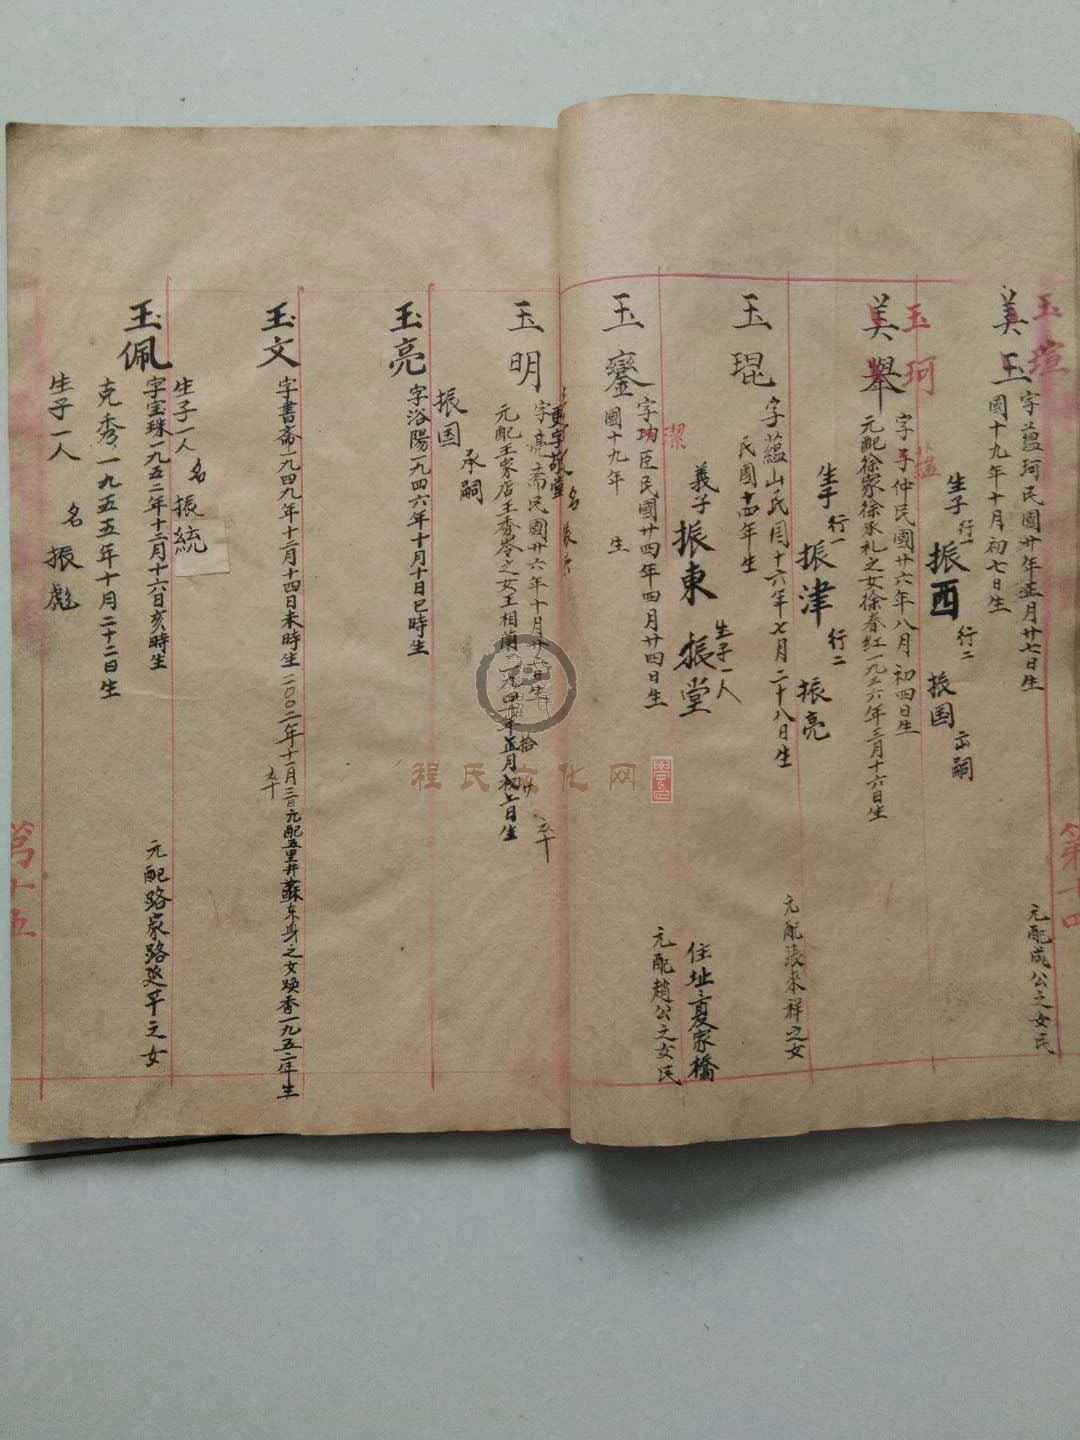 玉瑄
美玉
字蕴珂民國廿年正月廿七日生
元配成公之女民
國十九年十月初七日生
生子 行一 振西 行二 振国 出嗣
玉珂
美舉
字子仲民國廿六年八月初四日生
蕴
元配徐家徐承礼之女徐春紅一九三六年三月十六日生
生子 行一 振津 行二 振亮
玉琨
字蘊山民国十六年七月二十八日生
元配張来祥之女
民國十四年生
義子 振東 生子一人 振堂
住址夏家橋
潔
玉鑾
字功臣民國廿四年四月廿四日生
元配趙公之女民
國十九年 生
更字敬堂
玉明
字亮斋民國廿六年十月廿 日生
元配王家店王秀岺之女王相蘭一九四 年正月初 日生
振国 承嗣
玉亮
字浴陽一九四六年十月十日巳時生
玉文
字書斋一九四九年十二月十四日未時生二00二年十一月三日 元配五里井蘇东身之女焕香一九五二年生
生子一人 名 振統
玉佩
字宝珠一九五二年十二月十六日亥時生
元配路家路延平之女
克秀一九五五年十月二十二日生
生子一人 名 振彪
第十四
第十五
程氏文化网